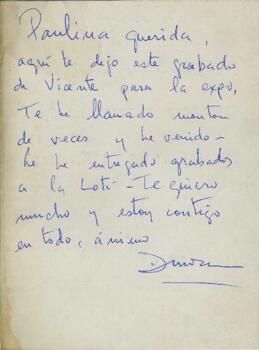 Paulina querida,
aquí te dejo este grabado
de Vicente para la expo,
Te he llamado monton
de veces y he venido -
he he entregado grabados
a la Loti - Te quiero
mucho y estoy contigo
en todo, ánimo